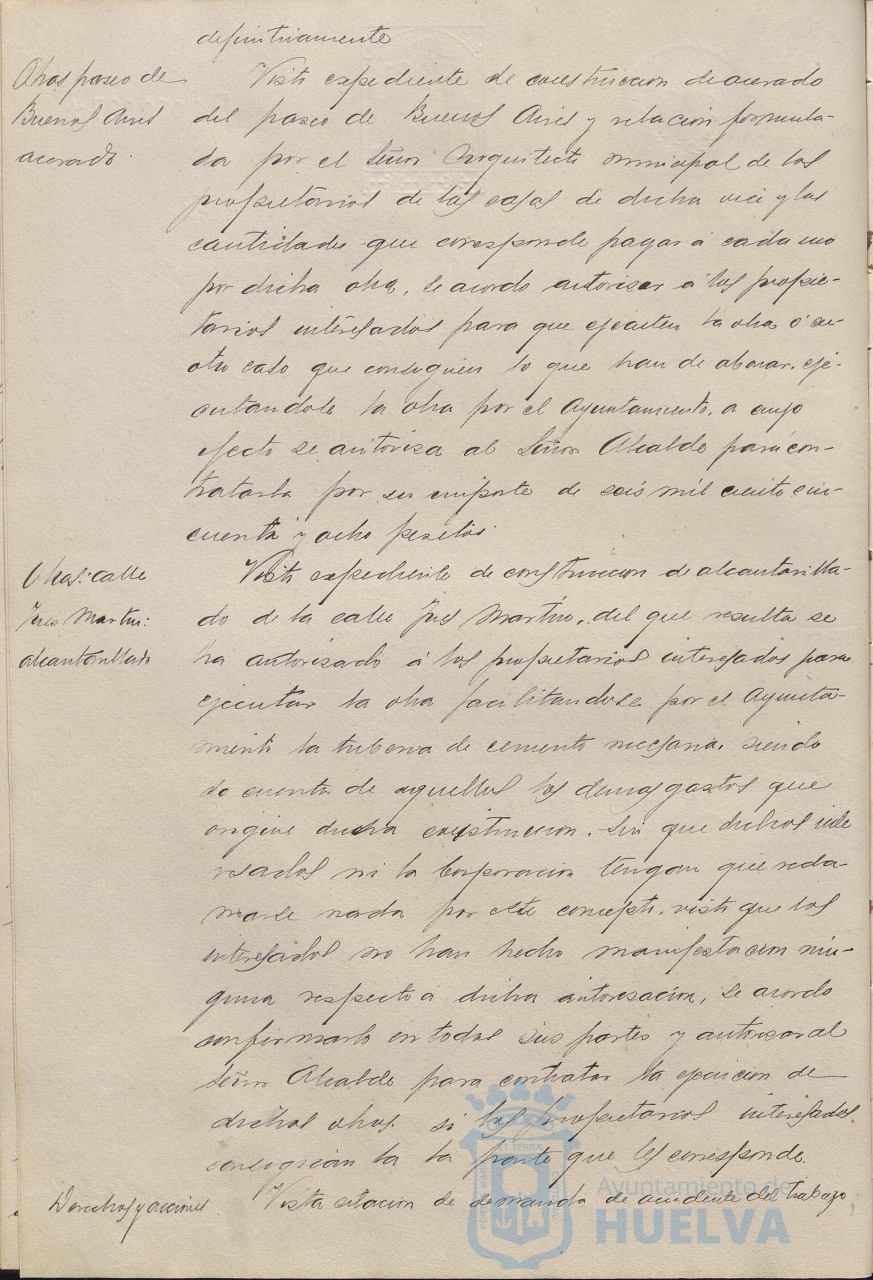 definitivamente
Obras paseo de
Buenos Aires
acerado.
Visto expediente de construccion de acerado
del paseo de Buenos Aires y relación formula-
da por el Señor Arquitecto municipal de los
propietarios de las casas de dicha vía y las
cantidades que corresponde pagar á cada uno
por dicha obra, se acordo autorizar á los propie-
tarios interesados para que ejecuten la obra ó en
otro caso que consignen lo que han de abonar, eje-
cutandose la obra por el Ayuntamiento, a cuyo
efecto se autoriza al Señor Alcalde para con-
tratarla por su importe de seis mil ciento cin-
cuenta y ocho pesetas.
Obras: calle
Ines Martin:
alcantarillado
Visto expediente de construccion de alcantarilla-
do de la calle Ines Martin, del que resulta se
ha autorizado á los propietarios interesados para
ejecutar la obra facilitandose por el Ayunta-
miento la tuberia de cemento necesaria, siendo
de cuenta de aquellos los demas gastos que
origine dicha construccion, sin que dichos inte
resados ni la Corporacion tengan que recla-
marse nada por este concepto, visto que los
interesados no han hecho manifestacion nin-
guna respecto á dicha autorizacion, se acordo
confirmarlo en todas sus partes y autorizar al
Señor Alcalde para contratar la ejecucion de
dichas obras si los propietarios interesados
consignan la la parte que les corresponde.
Derechos y acciones
Vista citacion de demanda de accidente del trabajo
Ayuntamiento de
HUELVA